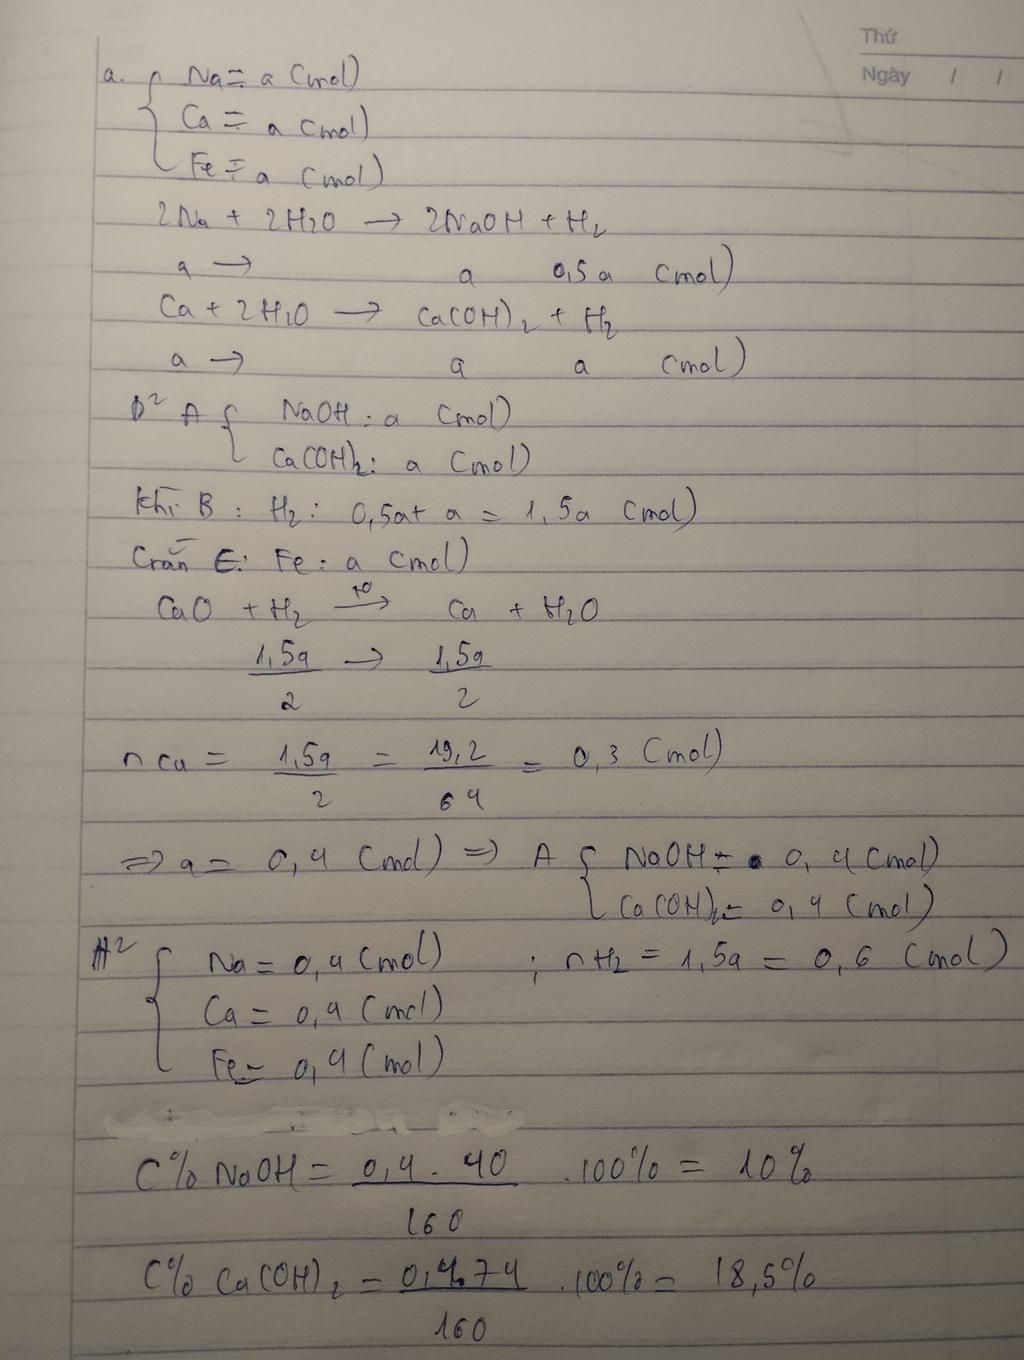 Thứ
Ngày / /
a. { Na = a (mol)
Ca = a (mol)
Fe = a (mol)
2Na + 2H2O → 2NaOH + H2
a → a 0,5a (mol)
Ca + 2H2O → Ca(OH)2 + H2
a → a a (mol)
D² A { NaOH : a (mol)
Ca(OH)2 : a (mol)
Khí B : H2 : 0,5a + a = 1,5a (mol)
Crắn E : Fe : a (mol)
CuO + H2 →(t°) Cu + H2O
1,5a/2 → 1,5a/2
n Cu = 1,5a/2 = 19,2/64 = 0,3 (mol)
⇒ a = 0,4 (mol) ⇒ A { NaOH = 0,4 (mol)
Ca(OH)2 = 0,4 (mol)
H² { Na = 0,4 (mol) ; nH2 = 1,5a = 0,6 (mol)
Ca = 0,4 (mol)
Fe = 0,4 (mol)
C% NaOH = 0,4 . 40/160 .100% = 10%
C% Ca(OH)2 = 0,4.74/160 .100% = 18,5%